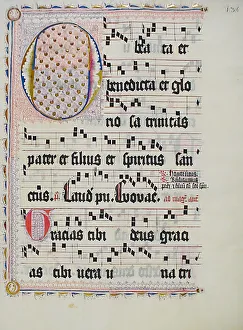 O bea ta et
benedicta et glo
rio sa trinitas
pater et filius et spiritus san
ctus. Laud pu. Evovae.
Gracias tibi deus graci
as tibi vera u na tri